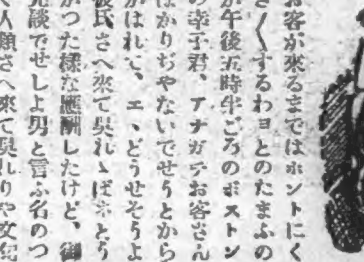 お客が來るまではホントにく
さ〲するわヨとのたまふの
が午後五時半ごろのボストン
の幸子君、アナガチお客さん
ばかりぢやないでせうとから
かはれて、エ、どうせそうよ
彼氏さへ來て呉れゝばネとう
がつた樣な應酬したけど、御
冗談でせしよ男と言ふ名のつ
く人類さへ來て呉れりや文句